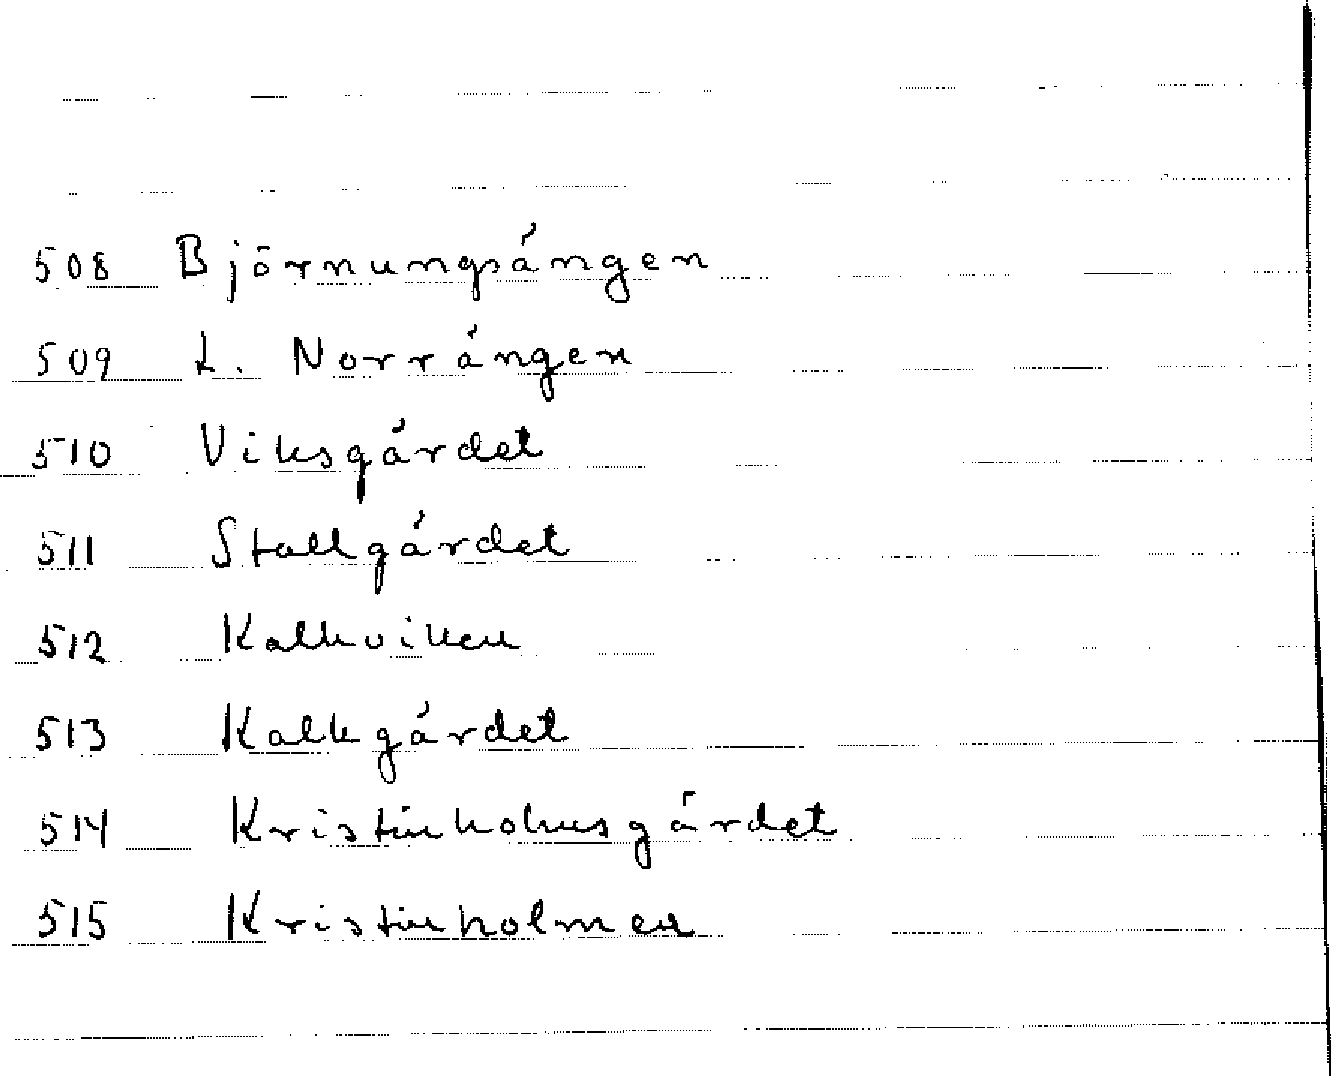 508 Björnungsängen
509 L. Norrängen
510 Viksgärdet
511 Stallgärdet
512 Kalkviken
513 Kalkgärdet
514 Kristinholmsgärdet
515 Kristinholmen